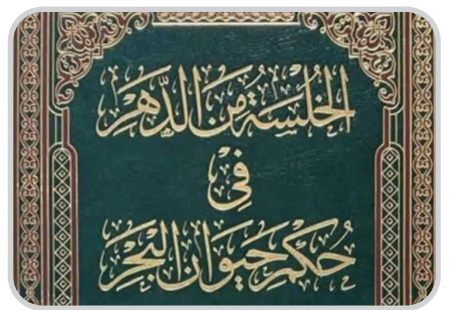 الخُلسَةُ مِنَ الدَّهْرِ
فِي
حُكْمِ حَيَوَانِ البَحْرِ